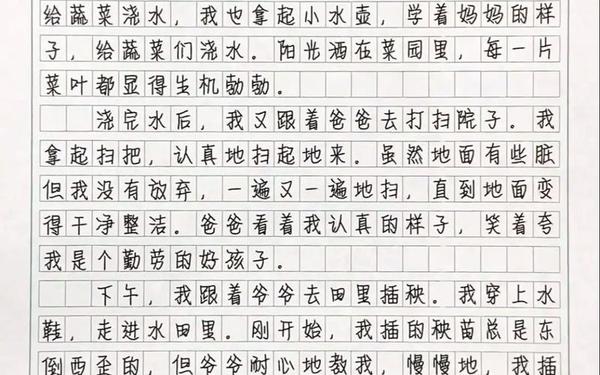 给蔬菜浇水，我也拿起小水壶，学着妈妈的样
子，给蔬菜们浇水。阳光洒在菜园里，每一片
菜叶都显得生机勃勃。
浇完水后，我又跟着爸爸去打扫院子。我
拿起扫把，认真地扫起地来。虽然地面有些脏
但我没有放弃，一遍又一遍地扫，直到地面变
得干净整洁。爸爸看着我认真的样子，笑着夸
我是个勤劳的好孩子。
下午，我跟着爷爷去田里插秧。我穿上水
鞋，走进水田里。刚开始，我插的秧苗总是东
倒西歪的，但爷爷耐心地教我，慢慢地，我插